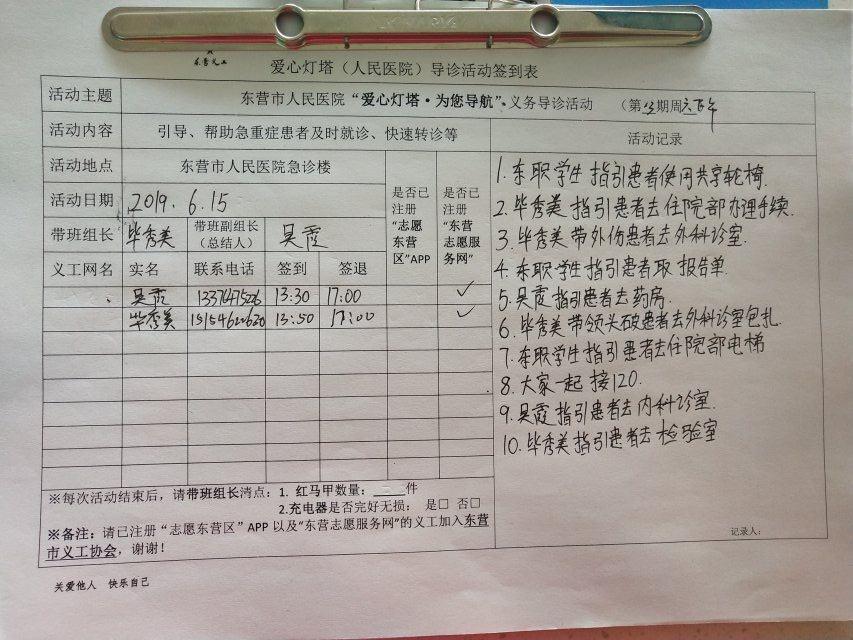 东营义工
爱心灯塔（人民医院）导诊活动签到表
活动主题 东营市人民医院“爱心灯塔·为您导航”义务导诊活动 （第 期周六下午
活动内容 引导、帮助急重症患者及时就诊、快速转诊等 活动记录
活动地点 东营市人民医院急诊楼
是否已注册“志愿东营区”APP
是否已注册“东营志愿服务网”
活动日期 2019.6.15
带班组长 毕秀美 带班副组长（总结人） 吴霞
义工网名 实名 联系电话 签到 签退
吴霞 13:30 17:00 ✓
毕秀美 15154620620 13:50 17:00 ✓
1.东职学生指引患者使用共享轮椅.
2.毕秀美指引患者去住院部办理手续.
3.毕秀美带外伤患者去外科诊室.
4.东职学生指引患者取报告单.
5.吴霞指引患者去药房.
6.毕秀美带领头破患者去外科诊室包扎.
7.东职学生指引患者去住院部电梯
8.大家一起接120.
9.吴霞指引患者去内科诊室.
10.毕秀美指引患者去检验室
※每次活动结束后，请带班组长清点：1. 红马甲数量：____件
2.充电器是否完好无损： 是□ 否□
※备注：请已注册“志愿东营区”APP以及“东营志愿服务网”的义工加入东营
市义工协会，谢谢！
记录人：
关爱他人 快乐自己